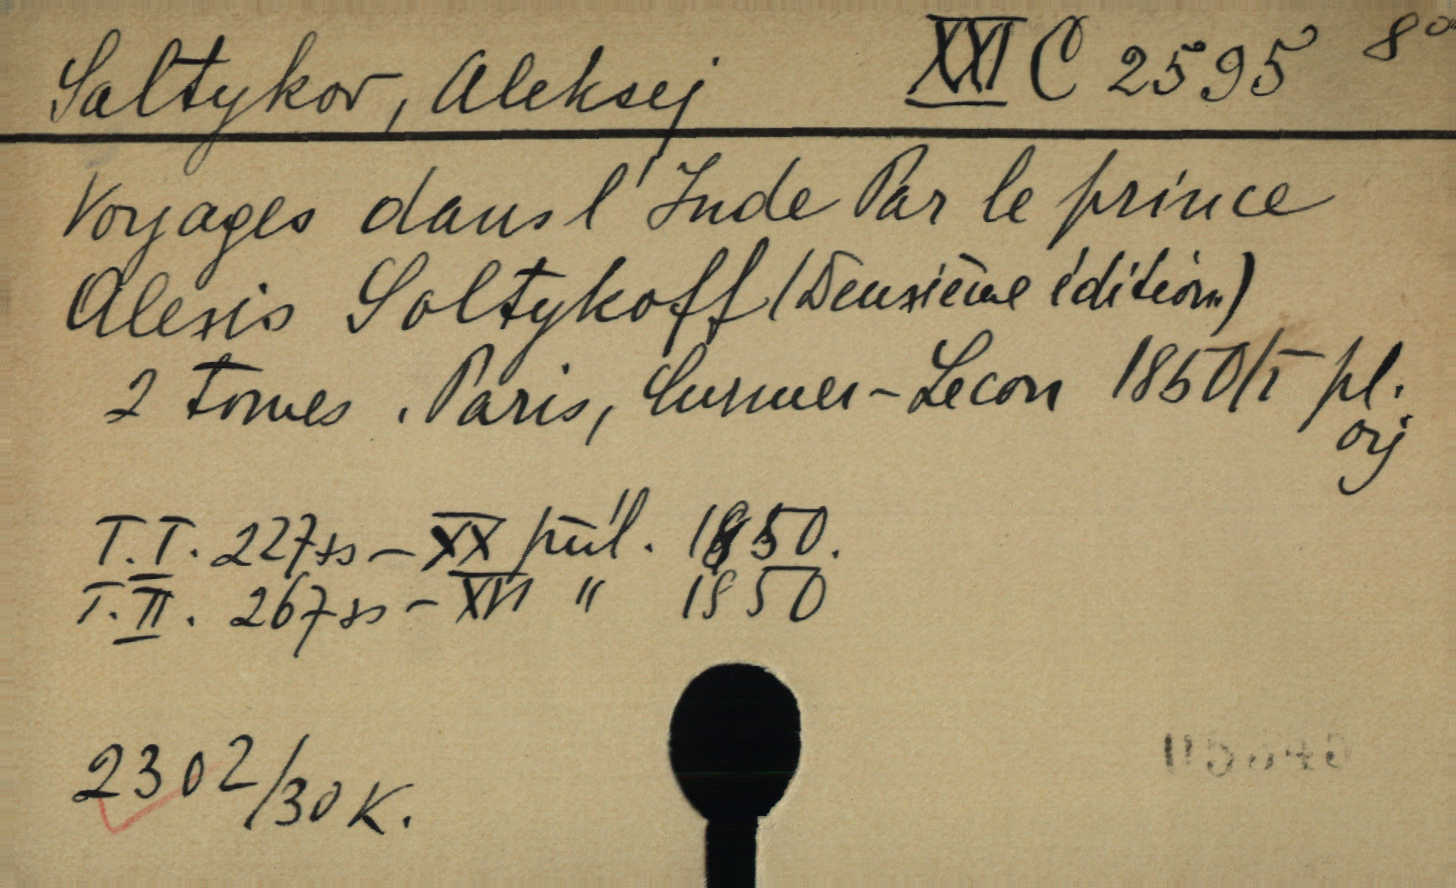 Saltykov, Aleksej XXI C 2595 8°
Voyages dans l'Inde Par le prince
Alexis Soltykoff (Deuxième édition)
2 tomes. Paris, Curmer-Lecou 1850/I pl.
orj
T.I. 227 ss - XX pül. 1850.
T.II. 267 ss - XVI " 1850
2302/30 K.